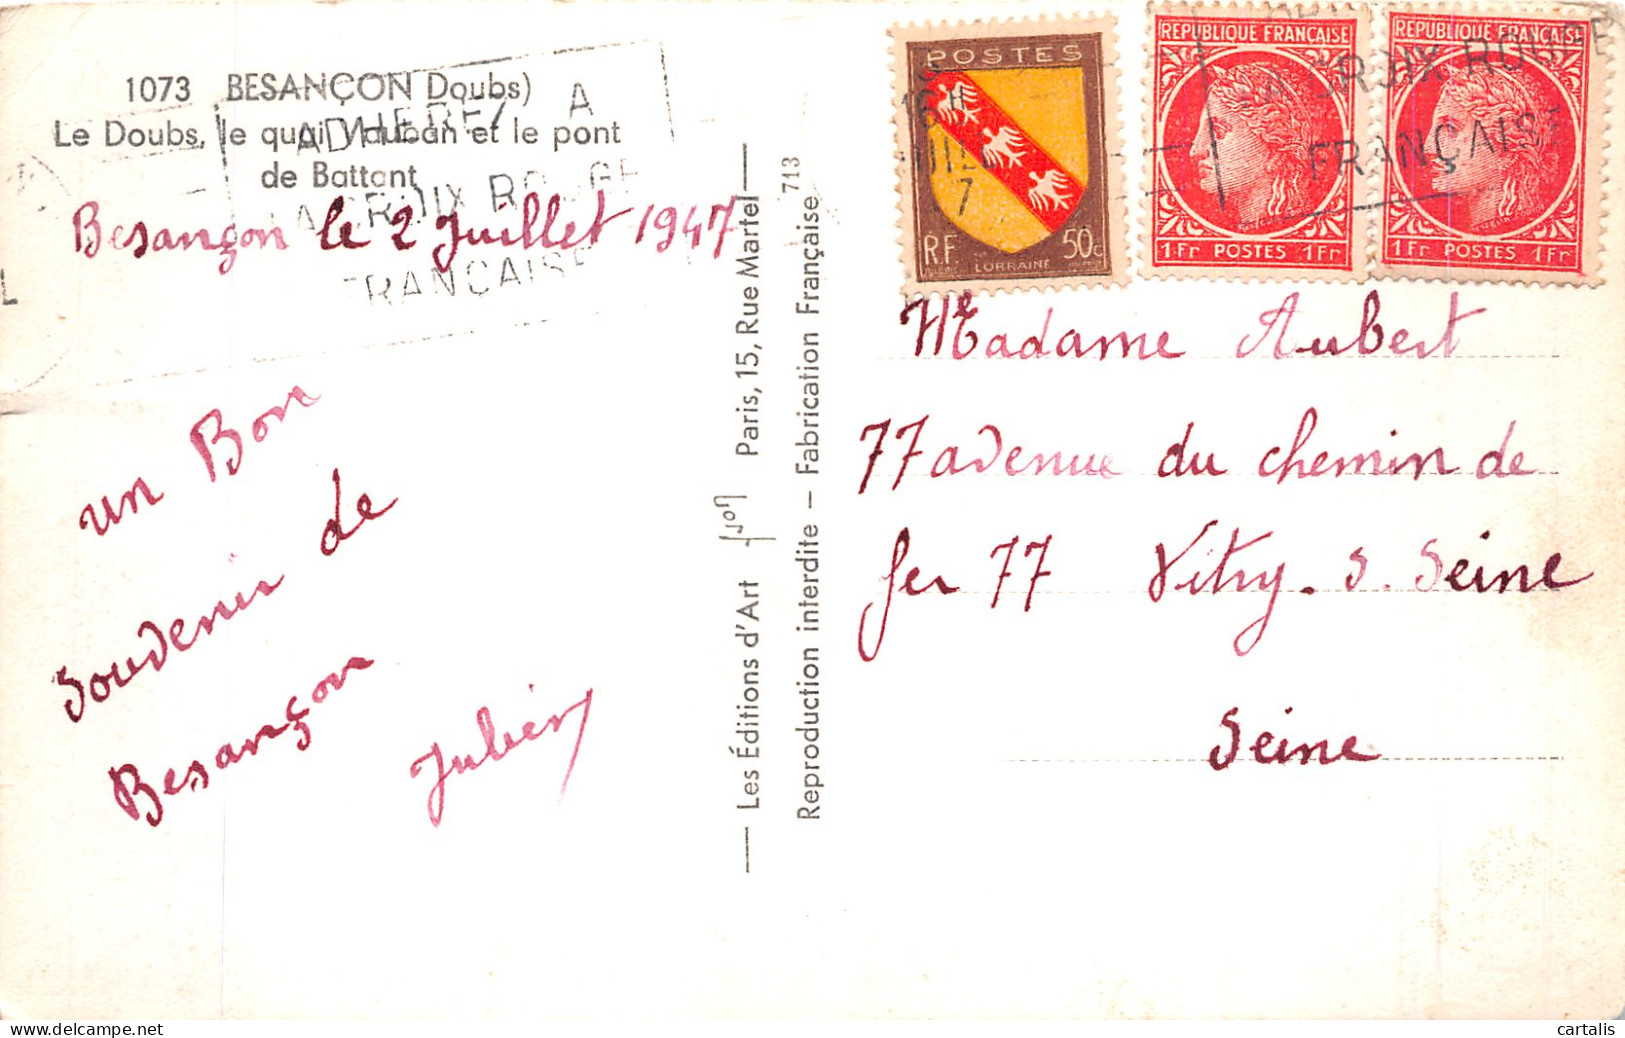 1073 BESANÇON Doubs)
Le Doubs, le quai Vauban et le pont
de Battant
ADHEREZ A
LA CROIX ROUGE
FRANÇAISE
Besançon le 2 Juillet 1947
un Bon
Souvenir de
Besançon
— Les Éditions d'Art Yvon Paris, 15, Rue Martel —
Reproduction interdite — Fabrication Française 713
POSTES
RF
LORRAINE
50c
REPUBLIQUE FRANÇAISE
1Fr POSTES 1Fr
REPUBLIQUE FRANÇAISE
1Fr POSTES 1Fr
LA CROIX ROUGE
FRANÇAISE
Madame Aubert
77 avenue du chemin de
fer 77 Vitry. S. Seine
Seine
cartalis